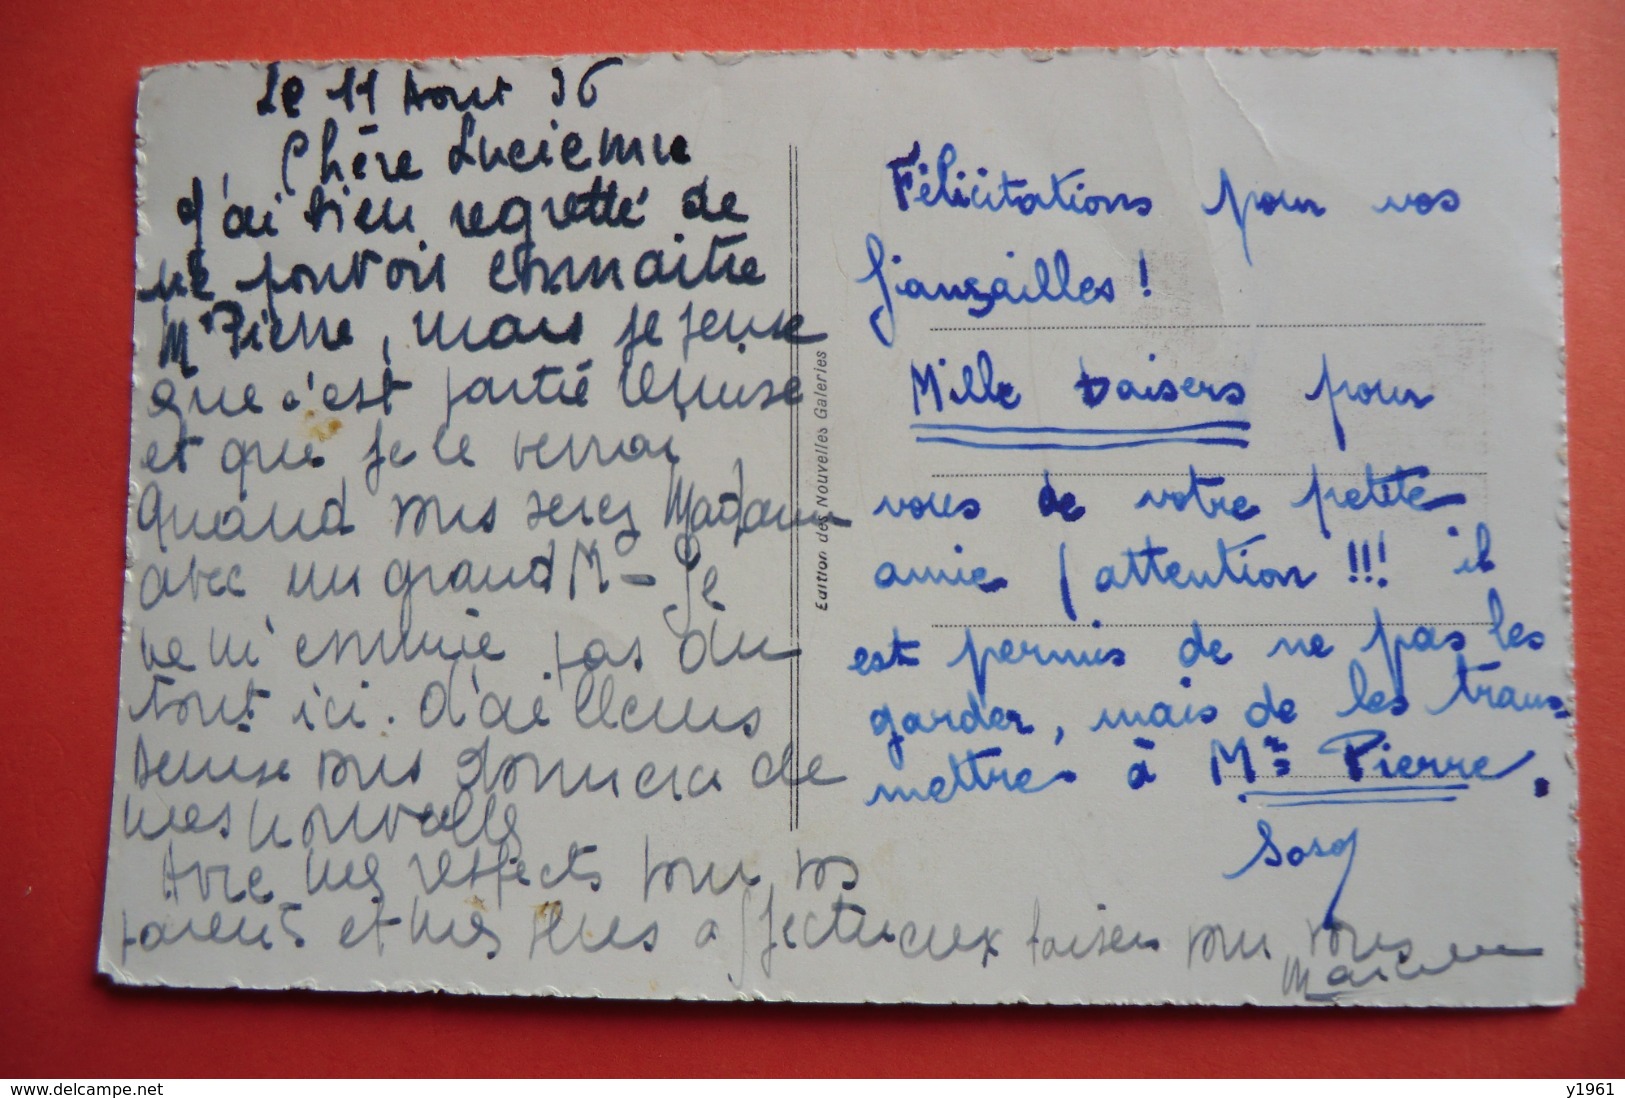 Le 11 Aout 36
Chère Lucienne
J'ai bien regretté de
ne pouvoir connaitre
Mr Pierre, mais je pense
que c'est partie remise
et que je le verrai
quand vous serez Madame
avec un grand M - Je
ne m'ennuie pas du
tout ici. d'ailleurs
Denise vous donnera de
mes nouvelles
Avec mes respects pour vos
parents et mes plus affectueux baisers pour vous
Edition des Nouvelles Galeries
Félicitations pour vos
fiançailles !
Mille baisers pour
vous de votre petite
amie (attention !!! il
est permis de ne pas les
garder, mais de les trans-
mettre à Mr Pierre.
delcampe.net
y1961